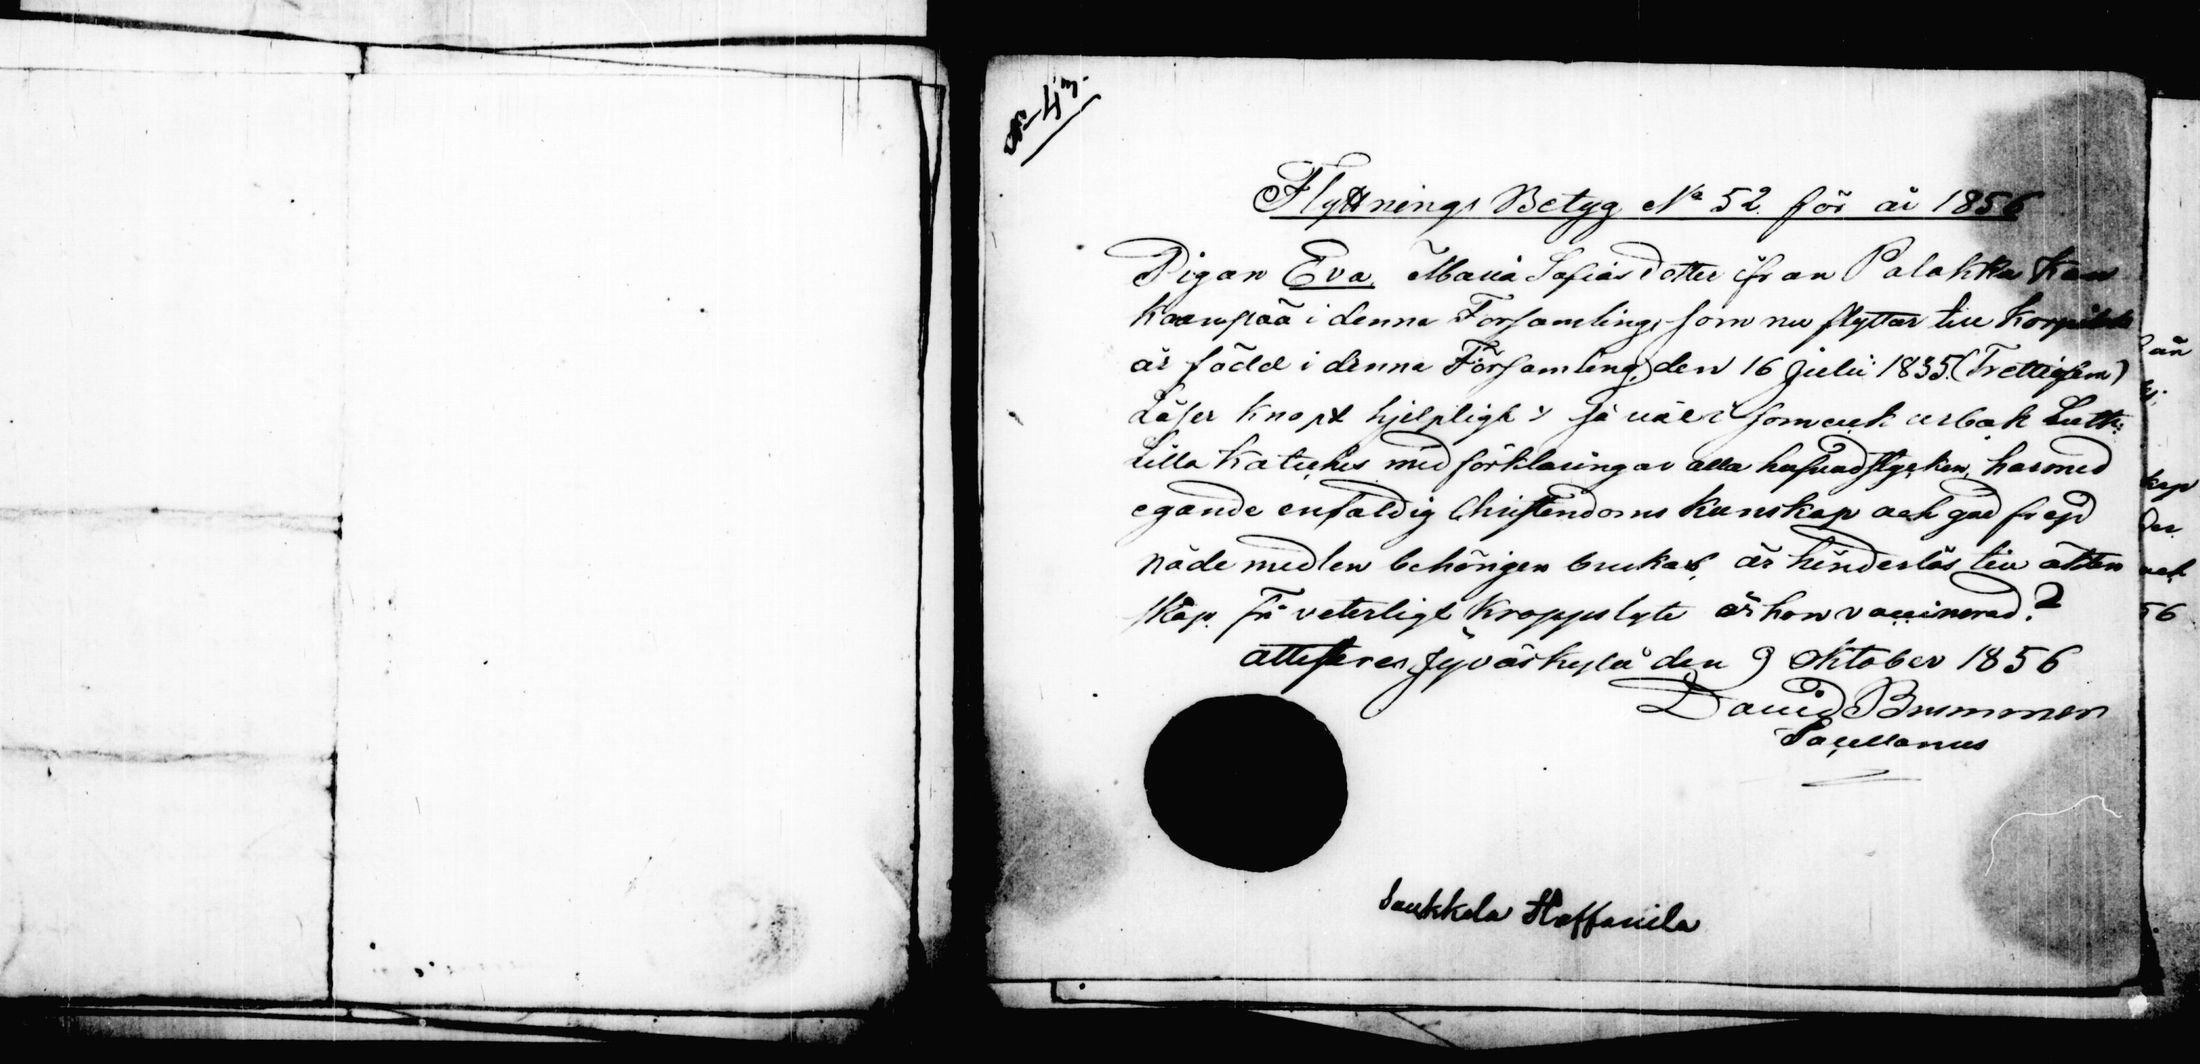 Nº 43.
Flyttnings Betyg Nº 52 för år 1856
Pigan Eva Maria Sofias dotter ifran Palokka
Kaanpää i denna Församling, som nu flyttar till Korpilaks
är född i denna Församling, den 16 Julii 1835. (Trettifem)
Läser knapt hjelpligt så väl i som utur bok Luth:
Lilla Kateches med förklaringar alla hufvudstycken, har med
egande enfaldig Christendoms kunskap och god frejd
nådemedlen behörigen brukat, är hinderlös till äkten
skap. för veterligt kroppslyte är hon vaccinerad?
attesterer Jyväskylä den 9 Oktober 1856
David Brummer
Sacellanus
Saukkola Haffanila
än
kap
56